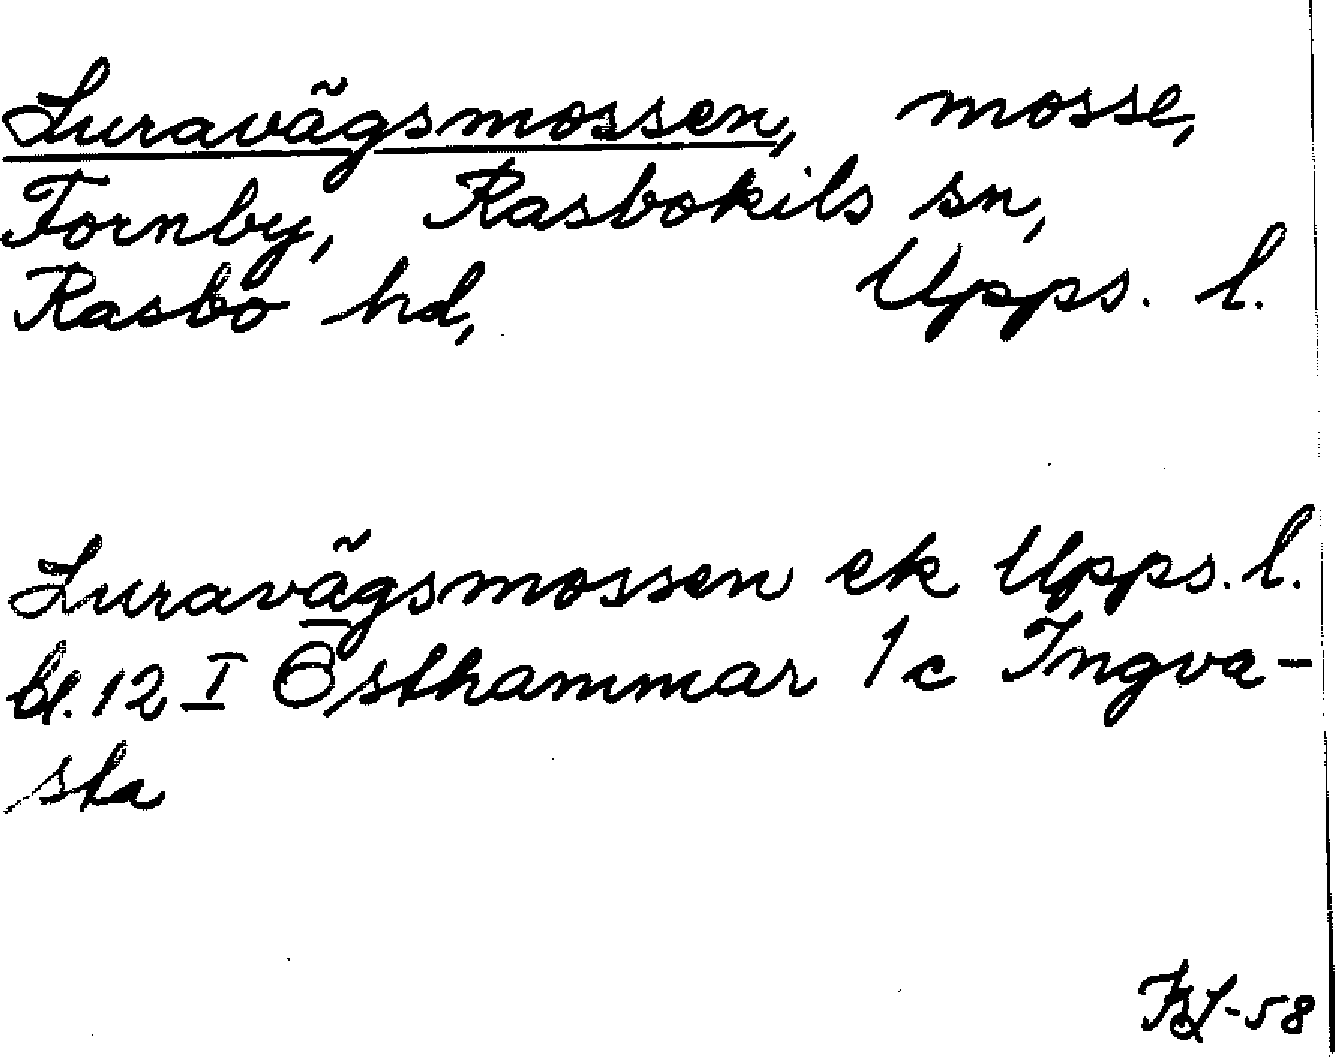 Luravägsmossen, mosse,
Fornby, Rasbokils sn,
Rasbo hd, Upps. l.
Luravägsmossen ek Upps. l.
bl. 12 I Östhammar 1c Ingva-
sta
-58